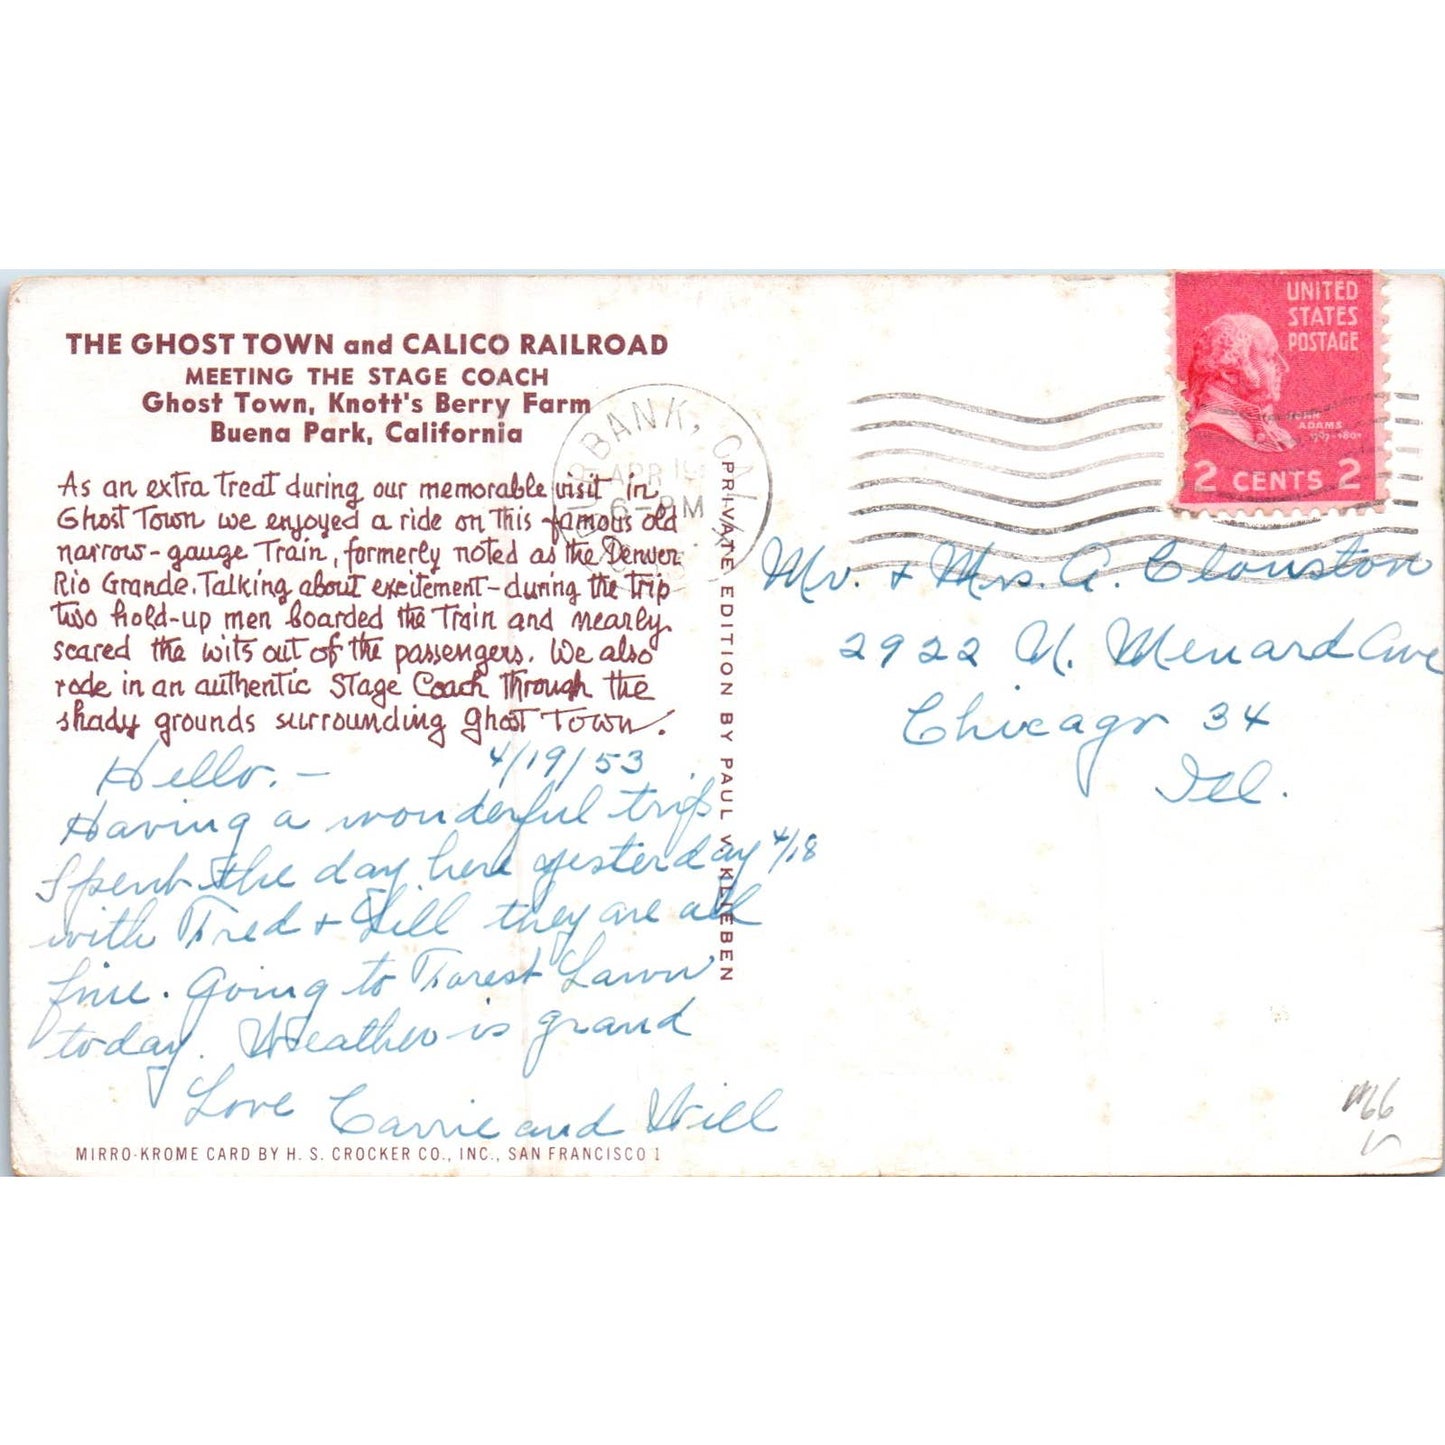 THE GHOST TOWN and CALICO RAILROAD
MEETING THE STAGE COACH
Ghost Town, Knott's Berry Farm
Buena Park, California
As an extra treat during our memorable visit in
Ghost Town we enjoyed a ride on this famous old
narrow-gauge Train, formerly noted as the Denver
Rio Grande. Talking about excitement-during the trip
two hold-up men boarded the Train and nearly
scared the wits out of the passengers. We also
rode in an authentic Stage Coach through the
shady grounds surrounding Ghost Town.
Hello. - 4/19/53
Having a wonderful trip
Spent the day here yesterday 4/18
with Fred + Lill they are all
fine. Going to Forest Lawn
today. Weather is grand
Love Carrie and Will
MIRRO-KROME CARD BY H. S. CROCKER CO., INC., SAN FRANCISCO 1
PRIVATE EDITION BY PAUL V. KLIEBEN
BURBANK, CALIF.
APR 19
6-PM
UNITED
STATES
POSTAGE
JOHN
ADAMS
1797-1801
2 CENTS 2
Mr. + Mrs. A. Clouston
2922 N. Menard Ave
Chicago 34
Ill.